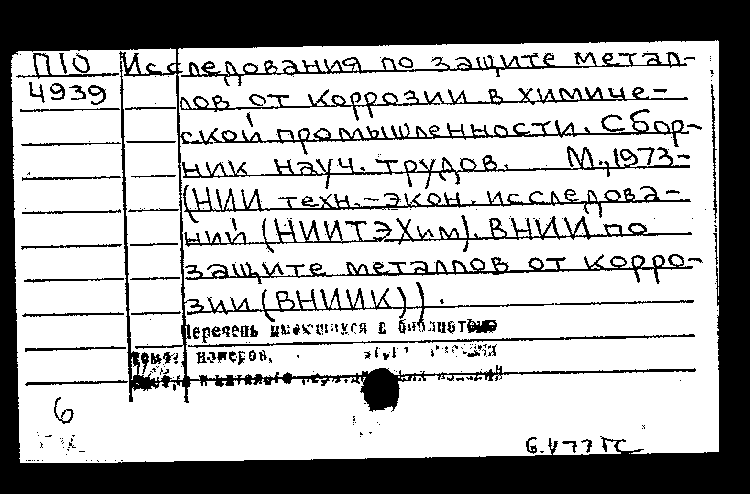 П10 Исследования по защите метал-
4939 лов от коррозии в химиче-
ской промышленности. Сбор-
ник науч. трудов. М., 1973-
(НИИ техн.-экон. исследова-
ний (НИИТЭХим). ВНИИ по
защите металлов от корро-
зии (ВНИИК)).
Перечень имеющихся в библиотеке
томов, номеров,
6